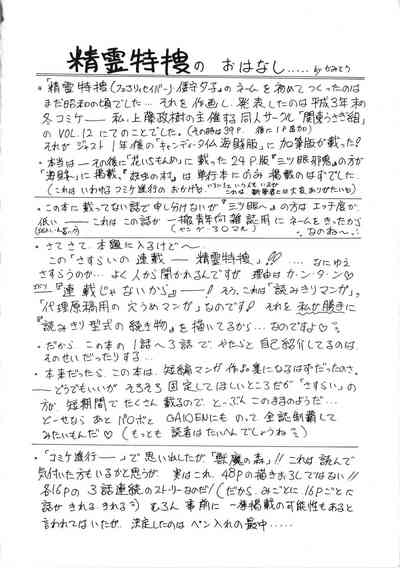 精霊特捜の おはなし..... by かみとう
・「精霊特捜(フェアリィセイバー) 保守タ子」のネームを初めてつくったのは
まだ昭和の頃でした… それを作画し、発表したのは平成3年末の
冬コミケ―― 私、上藤政樹の主催する同人サークル「関東うさぎ組」
の VOL.12 にてのことでした。(その時は39P. 後に1P追加)
それが ジャスト1年後の「キャンディータイム海賊版」に加筆版が載った?
・本当は―その後に「花いちもんめ」に載った24P版「三ツ眼邪鬼」の方が
「海賊」に掲載、「故味の村」は単行本にのみ掲載のはずでした。
(これはいわゆるコミケ進行のおかげ)
・この本に載ってない話で申し分けないが「三ツ眼へ」の方はエッチ度が
低い―― これはこの話が 一般青年向雑誌用にネームをきったから
なのね~。
・さてさて、本題に入るけど~、
この「さすらいの連載 ― 精霊特捜」!! .... なにゆえ
さすらうのか… よく人から聞かれるんですが 理由はカ・ン・タ・ン♡
「連載じゃないから」――!! そう、これは「読みきりマンガ」、
「代理原稿用の穴うめマンガ」なのです!! それを 私が勝手に
『読みきり型式の続き物』を描いてるから…なのですよ♡
・だから この本の1話へ3話で やたらと自己紹介してるのは、
そのせいだったりする…
・本来だったら、この本は、短編マンガ作品集になるはずだったのさ。
―― どうでもいいが そろそろ固定してほしいところだが 「さすらい」の
方が、短期間でたくさん載るので、と~ぶんこのままのようだ…
ど~せなら あと パロポと GAIDENにものって 全誌制覇して
みたいもんだ♡ (もっとも 読者はたいへんでしょうね)
・「コミケ進行――」で思いだしたが「獣魔の森」!! これは読んで
気付いた方もいるかと思うが、実はこれ、48Pの描きおろしではない!!
各16Pの3話連続のストーリーなのだ! (だから、みごとに 16Pごとに
話がきれるきれる) もろん 事前に 一挙掲載の可能性もあると
言われてはいたが、決定したのは ペン入れの最中.....